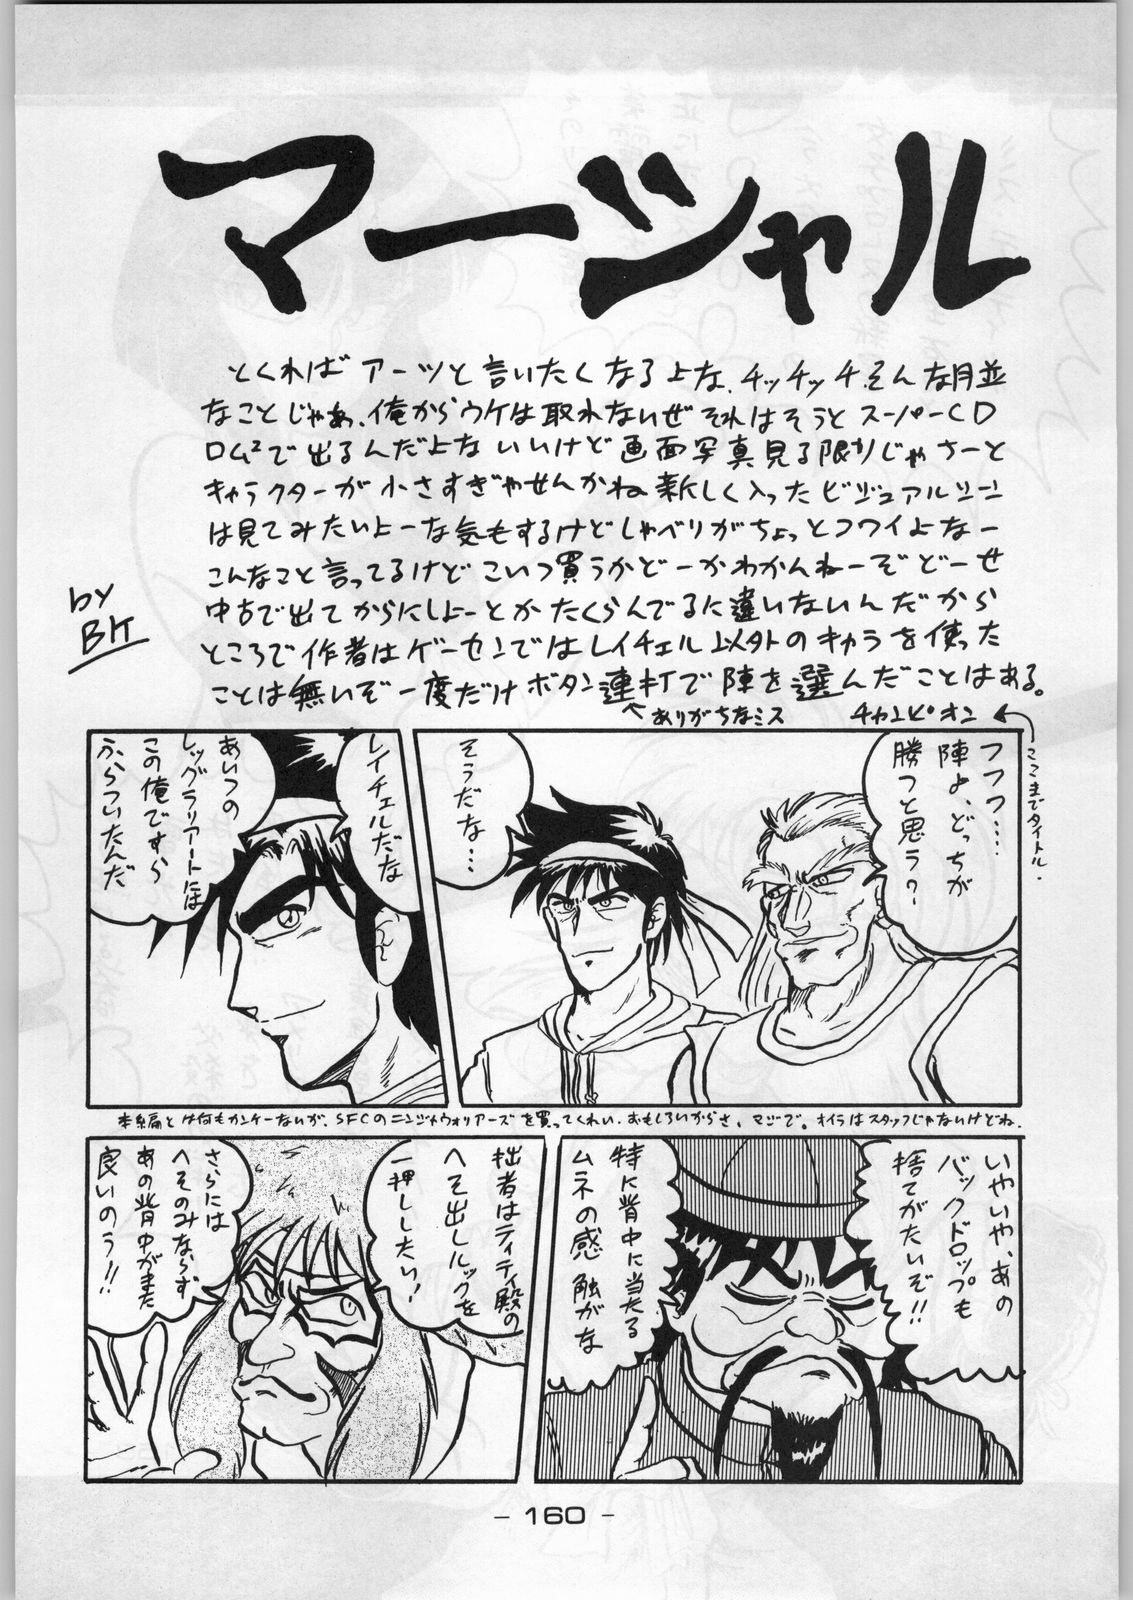 マーシャル
とくればアーツと言いたくなるよな、チッチッチ、そんな月並
なことじゃあ、俺からウケは取れないぜそれはそうとスーパーCD
ロム²で出るんだよないいけど画面写真見る限りじゃさーと
キャラクターが小さすぎやせんかね新しく入ったビジュアルシーン
は見てみたいよーな気もするけどしゃべりがちょっとコワイよなー
こんなこと言ってるけどこいつ買うかどーかわかんねーぞどーせ
中古で出てからにしよーとかたくらんでるに違いないんだから
ところで作者はゲーセンではレイチェル以外のキャラを使った
ことは無いぞ一度だけボタン連打で陣を選んだことはある。
by
BK
ありがちなミス
チャンピオン
ここまでタイトル.
フフフ……
陣よ、どっちが
勝つと思う?
そうだな…
レイチェルだな
あいつの
レッグラリアートには
この俺ですら
ふらついたんだ
本編とは何もカンケーないが、SFCのニンジャウォリアーズを買ってくれい.おもしろいからさ、マジで。オイラはスタッフじゃないけどね.
いやいや、あの
バックドロップも
捨てがたいぞ!!
特に背中に当たる
ムネの感触がな
拙者はティティ殿の
へそ出しルックを
一押ししたい!
さらには
へそのみならず
あの背中がまた
良いのう!!
- 160 -